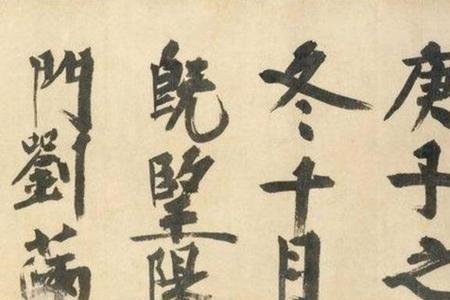 庚子之
冬十月
既望
門劉